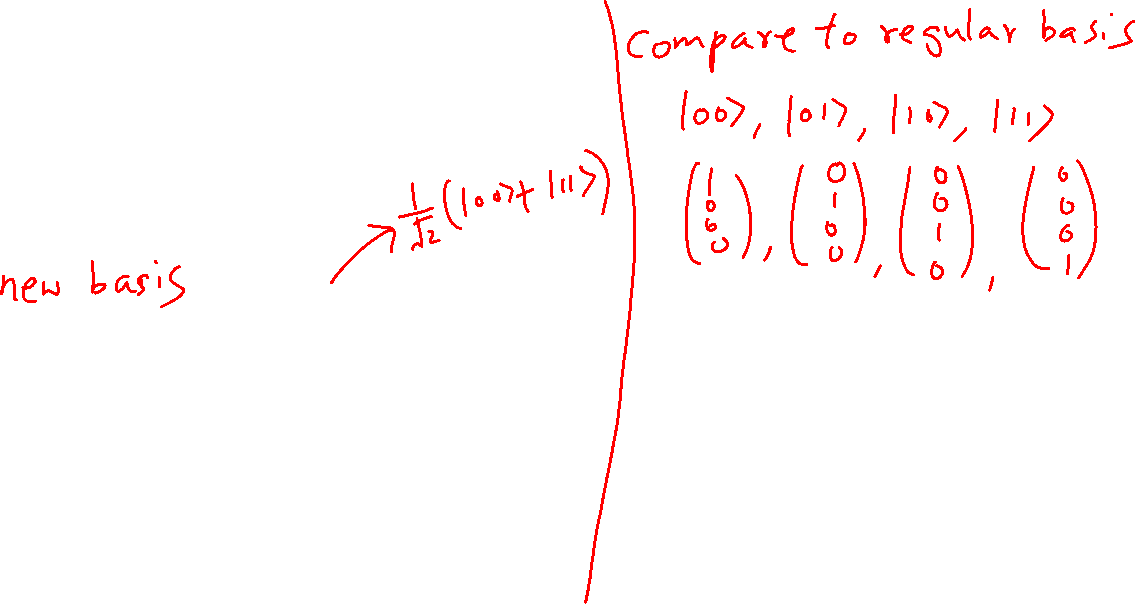 new basis
1/√2 (|00⟩ + |11⟩)
Compare to regular basis
|00⟩, |01⟩, |10⟩, |11⟩
(1 0 0 0), (0 1 0 0), (0 0 1 0), (0 0 0 1)